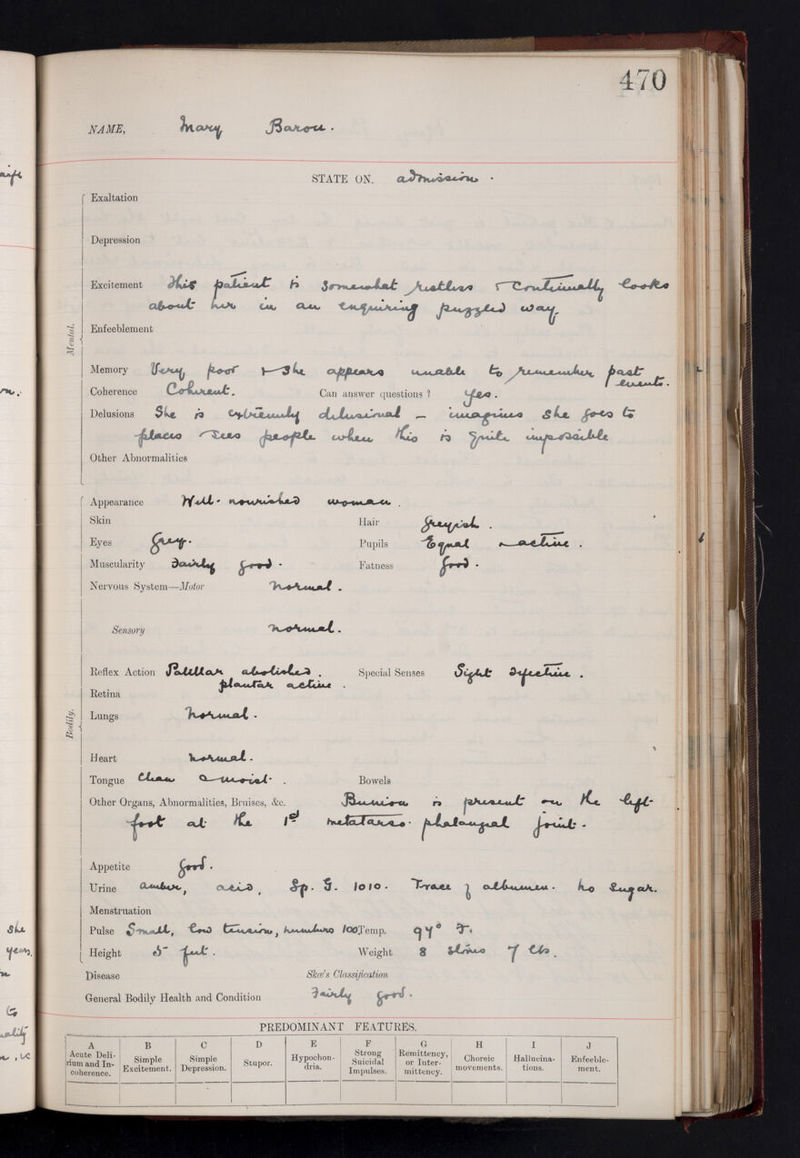 470
NAME, Mary Baron.
STATE ON, admission.
Mental.
Exaltation
Depression
Excitement This patient is somewhat restless & continually looks
about her in an enquiring puzzled way.
Enfeeblement
Memory Very poor & she appears unable to remember past
events.
Coherence Coherent. Can answer questions? Yes.
Delusions She is extremely delusional – imagines she goes to
places & sees people when this is quite impossible
Other Abnormalities
Bodily.
Appearance Well-nourished woman.
Skin Hair Greyish.
Eyes Grey. Pupils Equal & active.
Muscularity Fairly good. Fatness Good.
Nervous System—Motor Normal.
Sensory Normal.
Reflex Action Patellar abolished. Special Senses Sight defective.
plantar active.
Retina
Lungs Normal.
Heart Normal.
Tongue Clean & moist. Bowels
Other Organs, Abnormalities, Bruises, &c. Bunion is present on the left
foot at the 1st metatarso-phalangeal joint.
Appetite Good.
Urine amber, acid, Sp. G. 1010. Trace of albumen. No Sugar.
Menstruation
Pulse Small, low tension, numbers 100 Temp. 97° F.
Height 5 feet. Weight 8 stones 7 lbs.
Disease Skae's Classification
General Bodily Health and Condition Fairly good.
PREDOMINANT FEATURES.
A B C D E F G H I J
Acute Delirium and Incoherence. Simple Excitement. Simple Depression. Stupor. Hypochondria. Strong Suicidal Impulses. Remittency, or Intermittency. Choreic movements. Hallucinations. Enfeeblement.
She
years.